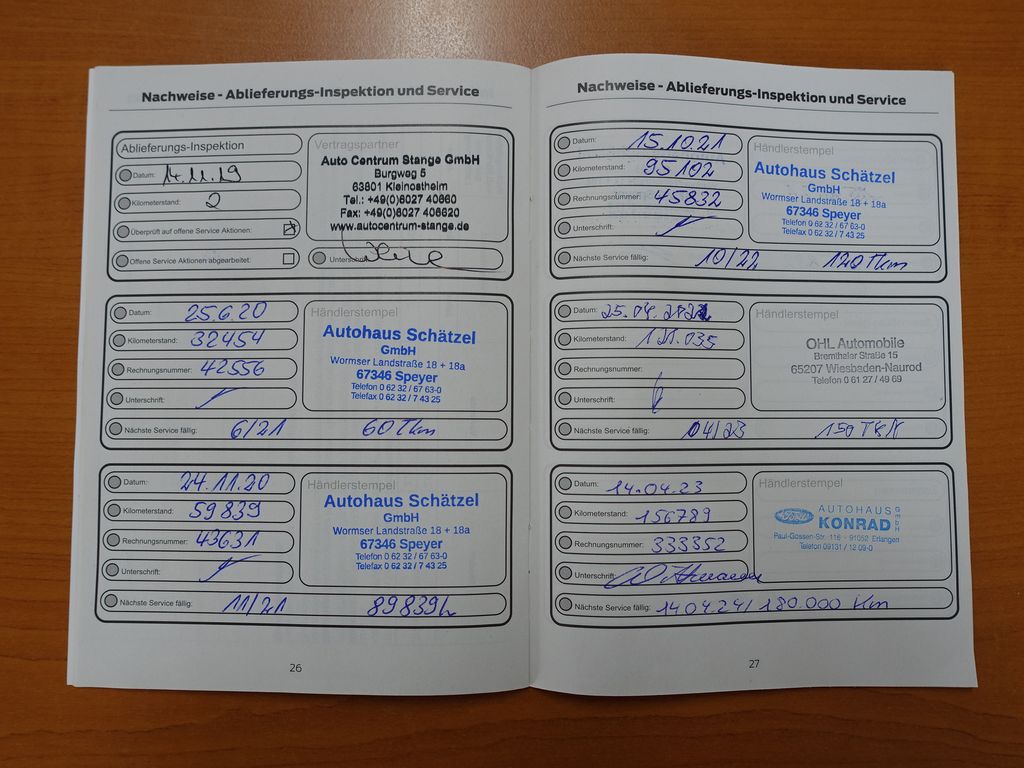 Nachweise - Ablieferungs-Inspektion und Service
Ablieferungs-Inspektion
Datum: 14.11.19
Kilometerstand: 2
Überprüft auf offene Service Aktionen:
Offene Service Aktionen abgearbeitet:
Vertragspartner
Auto Centrum Stange GmbH
Burgweg 5
63801 Kleinostheim
Tel.: +49(0)6027 40660
Fax: +49(0)6027 406620
www.autocentrum-stange.de
Datum: 25.6.20
Kilometerstand: 32454
Rechnungsnummer: 42556
Unterschrift:
Nächste Service fällig: 6/21 60 Tkm
Händlerstempel
Autohaus Schätzel
GmbH
Wormser Landstraße 18 + 18a
67346 Speyer
Telefon 0 62 32 / 67 63-0
Telefax 0 62 32 / 7 43 25
Datum: 24.11.20
Kilometerstand: 59839
Rechnungsnummer: 43631
Unterschrift:
Nächste Service fällig: 11/21 89839
Händlerstempel
Autohaus Schätzel
GmbH
Wormser Landstraße 18 + 18a
67346 Speyer
Telefon 0 62 32 / 67 63-0
Telefax 0 62 32 / 7 43 25
26
Nachweise - Ablieferungs-Inspektion und Service
Datum: 15.10.21
Kilometerstand: 95102
Rechnungsnummer: 45832
Unterschrift:
Nächste Service fällig: 10/22 120 Tkm
Händlerstempel
Autohaus Schätzel
GmbH
Wormser Landstraße 18 + 18a
67346 Speyer
Telefon 0 62 32 / 67 63-0
Telefax 0 62 32 / 7 43 25
Datum:
Kilometerstand: 121.035
Rechnungsnummer:
Unterschrift:
Nächste Service fällig: 04/23 150 TKM
Händlerstempel
OHL Automobile
Bremthaler Straße 15
65207 Wiesbaden-Naurod
Telefon 0 61 27 / 49 69
Datum: 14.04.23
Kilometerstand: 156789
Rechnungsnummer: 333352
Unterschrift:
Nächste Service fällig: 14.04.24 / 180.000 km
Händlerstempel
Ford
AUTOHAUS
KONRAD GmbH
Paul-Gossen-Str. 116 - 91052 Erlangen
Telefon 09131 / 12 09-0
27